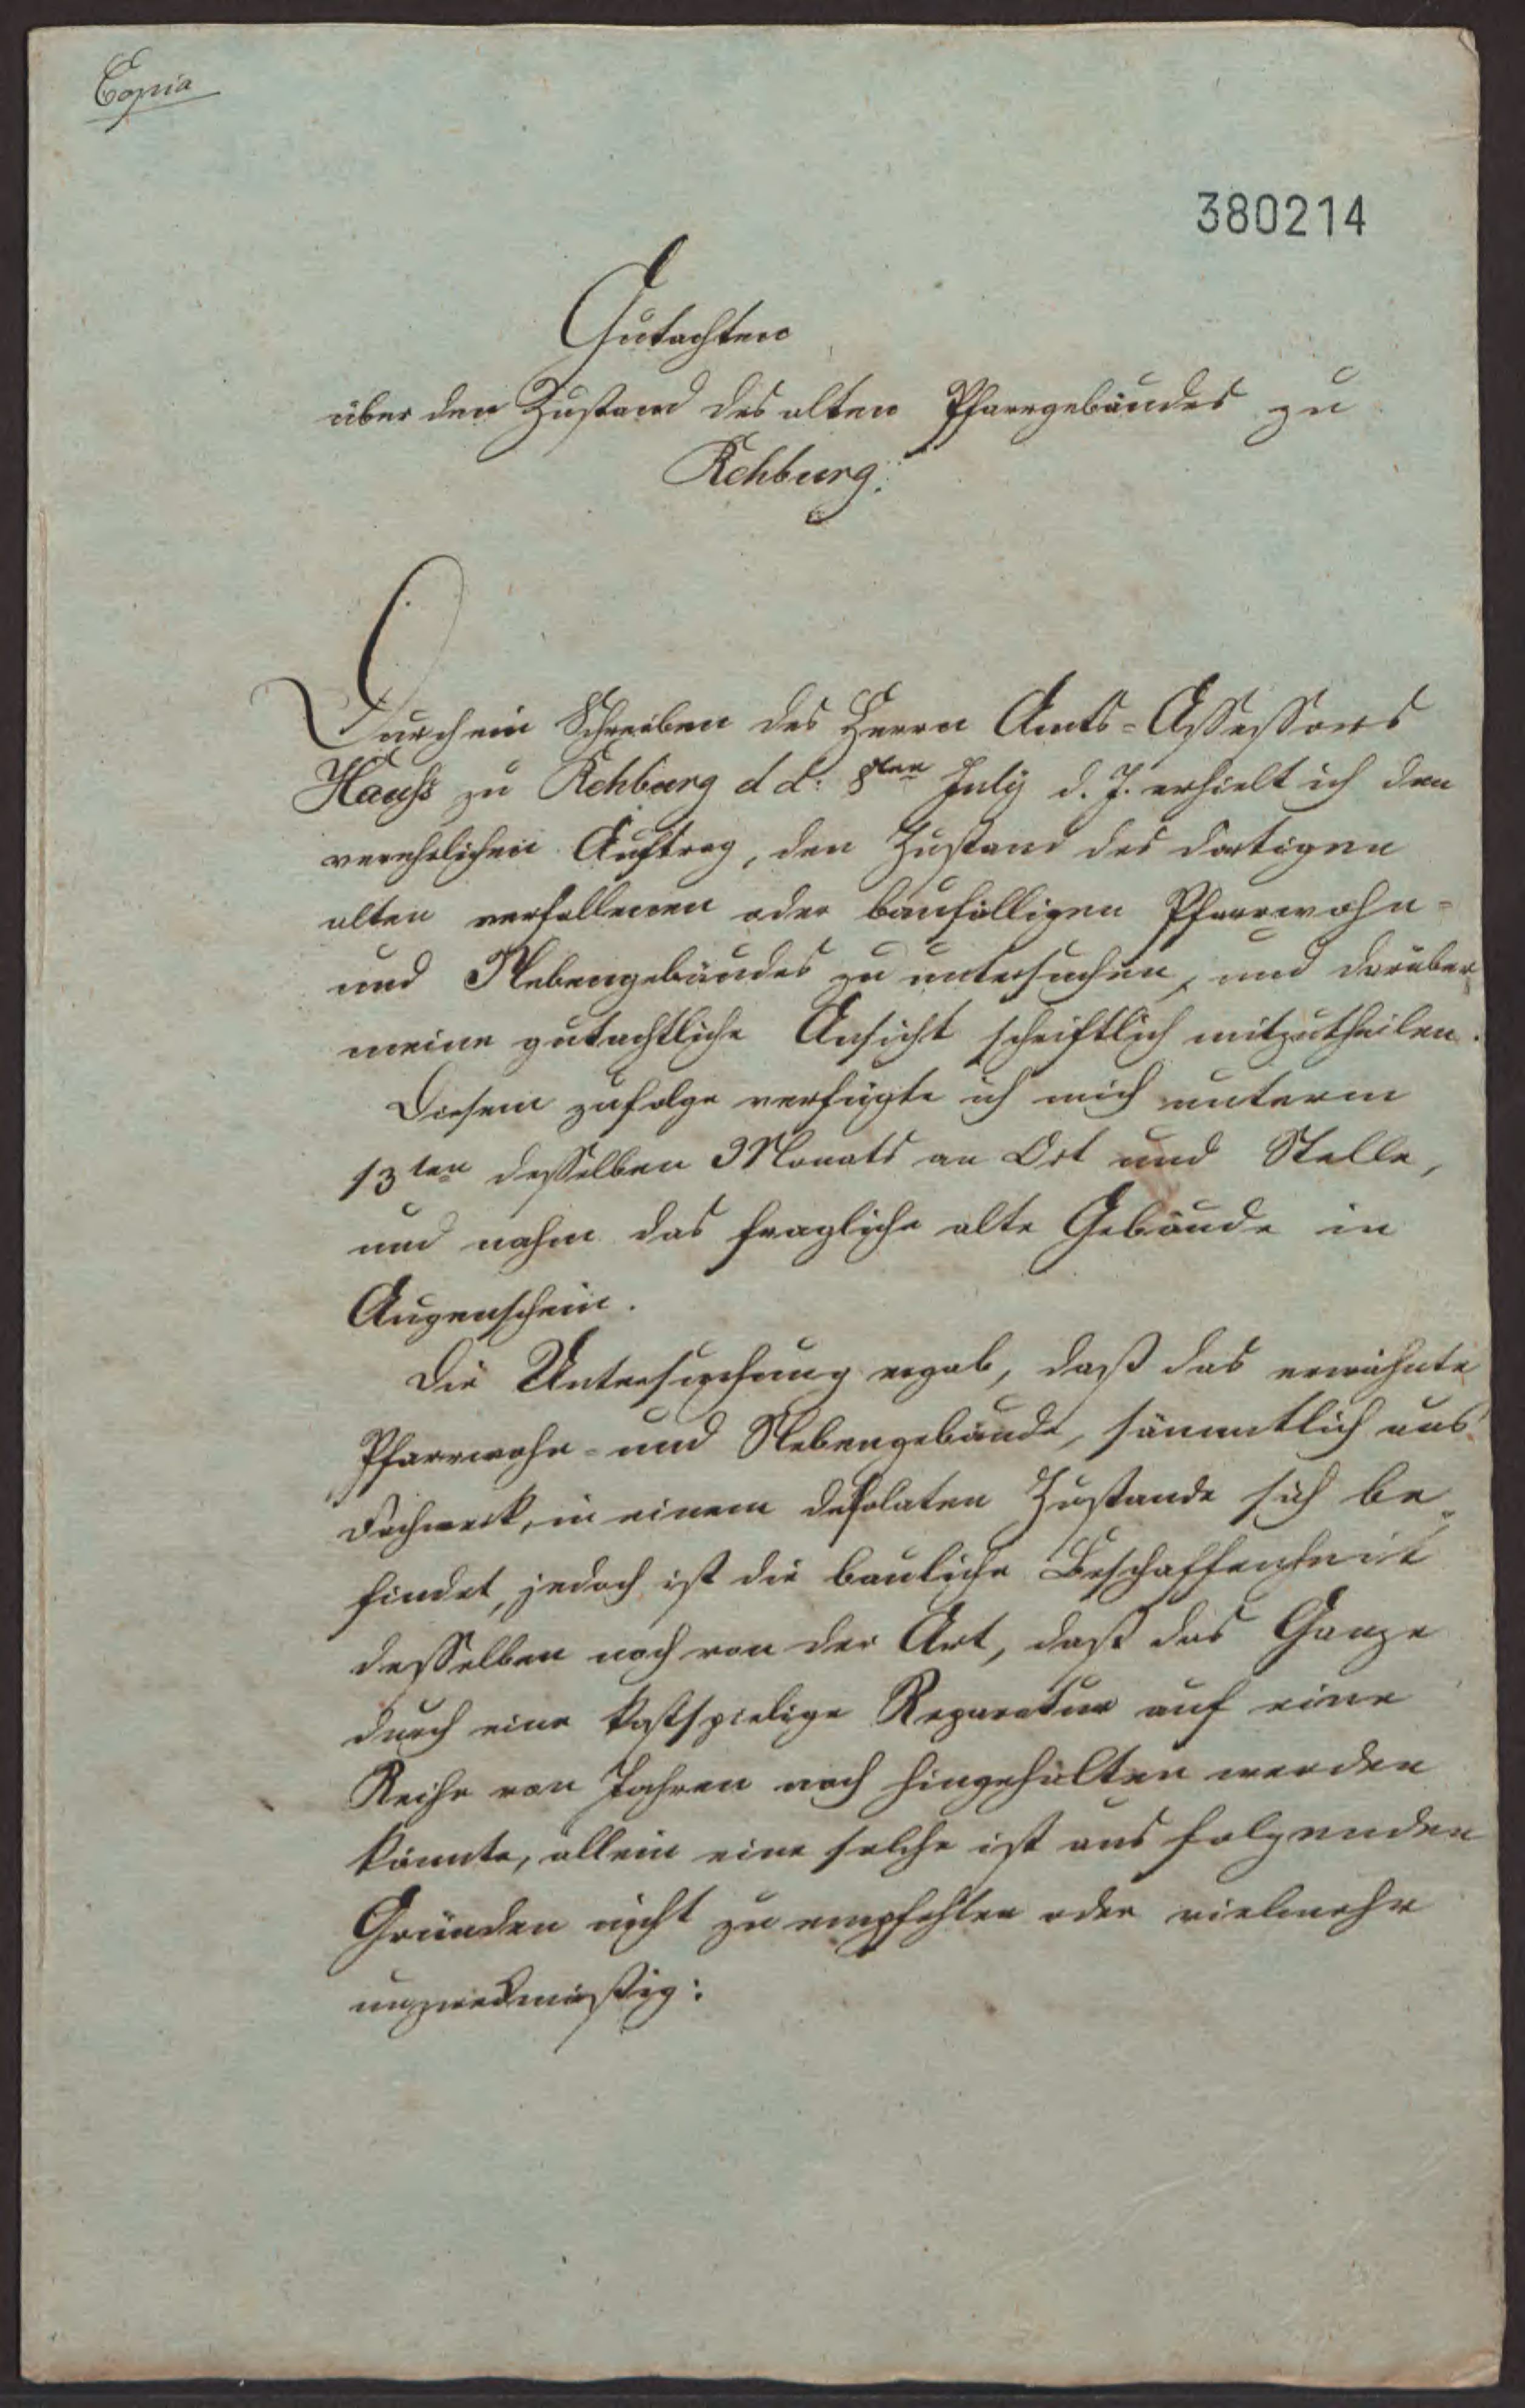 Copia
380214
Gutachten
über den Zustand des alten Pfarrgebäudes zu
Rehburg.
Durch ein Schreiben des Herrn Amts-Assessors
Hauss zu Rehburg d d: 8ten July d. J. erhielt ich den
verehrlichen Auftrag, den Zustand des dortigen
alten verfallenen oder baufälligen Pfarrwohn-
und Nebengebäudes zu untersuchen, und darüber
meine gutachtliche Ansicht schriftlich mitzutheilen.
Diesem zufolge verfügte ich mich unterm
13ten desselben Monats an Ort und Stelle,
und nahm das fragliche alte Gebäude in
Augenschein.
Die Untersuchung ergab, daß das erwähnte
Pfarrwohn- und Nebengebäude, sämmtlich aus
Fachwerk, in einem desolaten Zustande sich be-
findet, jedoch ist die bauliche Beschaffenheit
desselben noch von der Art, daß das Ganze
durch eine kostspielige Reparatur auf eine
Reihe von Jahren noch hingehalten werden
könnte, allein eine solche ist aus folgenden
Gründen nicht zu empfehlen oder vielmehr
unzweckmäßig: